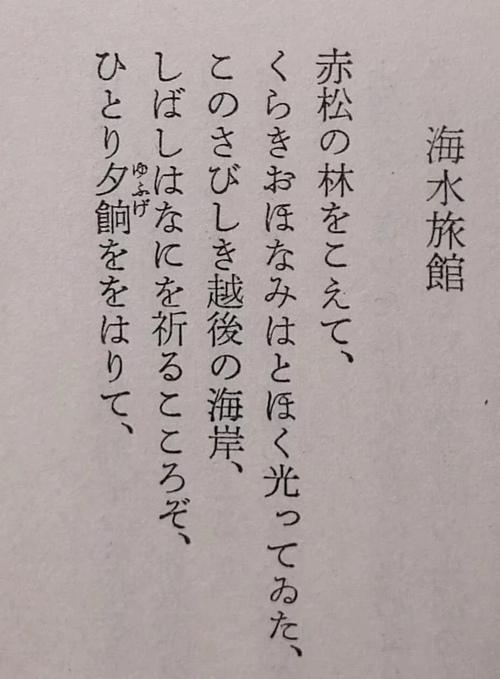 海水旅館
赤松の林をこえて、
くらきおほなみはとほく光ってゐた、
このさびしき越後の海岸、
しばしはなにを祈るこころぞ、
ひとり夕餉ををはりて、
ゆふげ